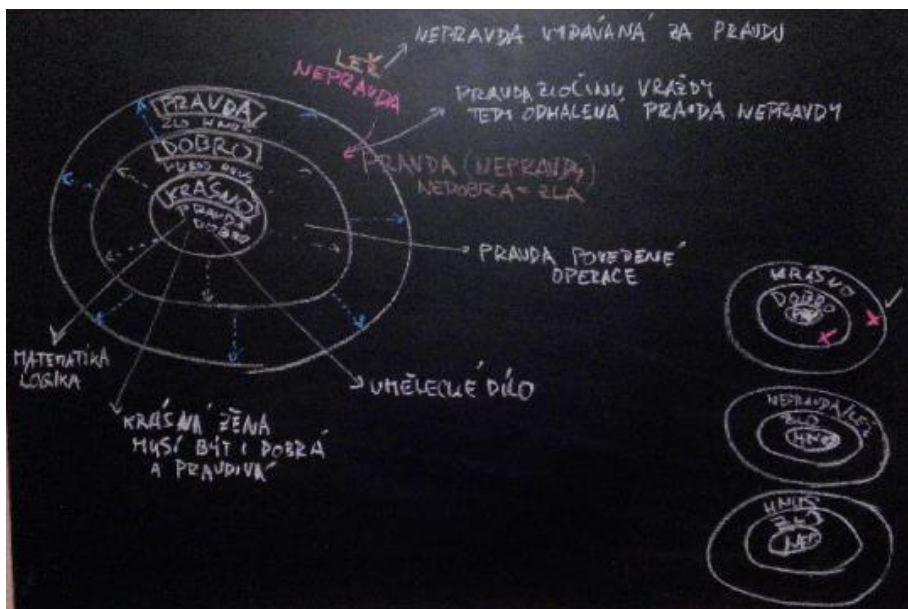 NEPRAVDA VYDÁVANÁ ZA PRAVDU
LEŽ
NEPRAVDA
PRAVDA ZLOČINU VRAŽDY
TEDY ODHALENÁ PRAVDA NEPRAVDY
PRAVDA (NEPRAVDY)
NEDOBRÁ = ZLÁ
PRAVDA
ZLO HNUS
DOBRO
HNUS
KRÁSNO
PRAVDA
DOBRO
PRAVDA POVEDENÉ
OPERACE
MATEMATIKA
LOGIKA
UMĚLECKÉ DÍLO
KRÁSNÁ ŽENA
MUSÍ BÝT I DOBRÁ
A PRAVDIVÁ
KRÁSNO
DOBRO
NEPRAVDA/LEŽ
ZLO
HNUS
HNUS
ZLO
NEP